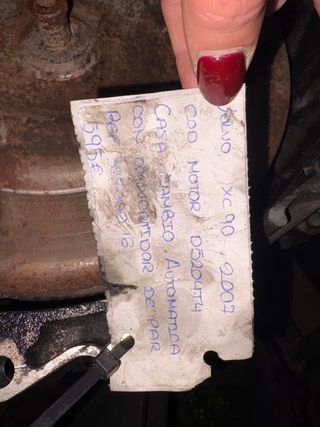 VOLVO XC90, 2007
COD MOTOR D5204T4
CAJA CAMBIO AUTOMATICA
CON CONVERTIDOR DE PAR
595€